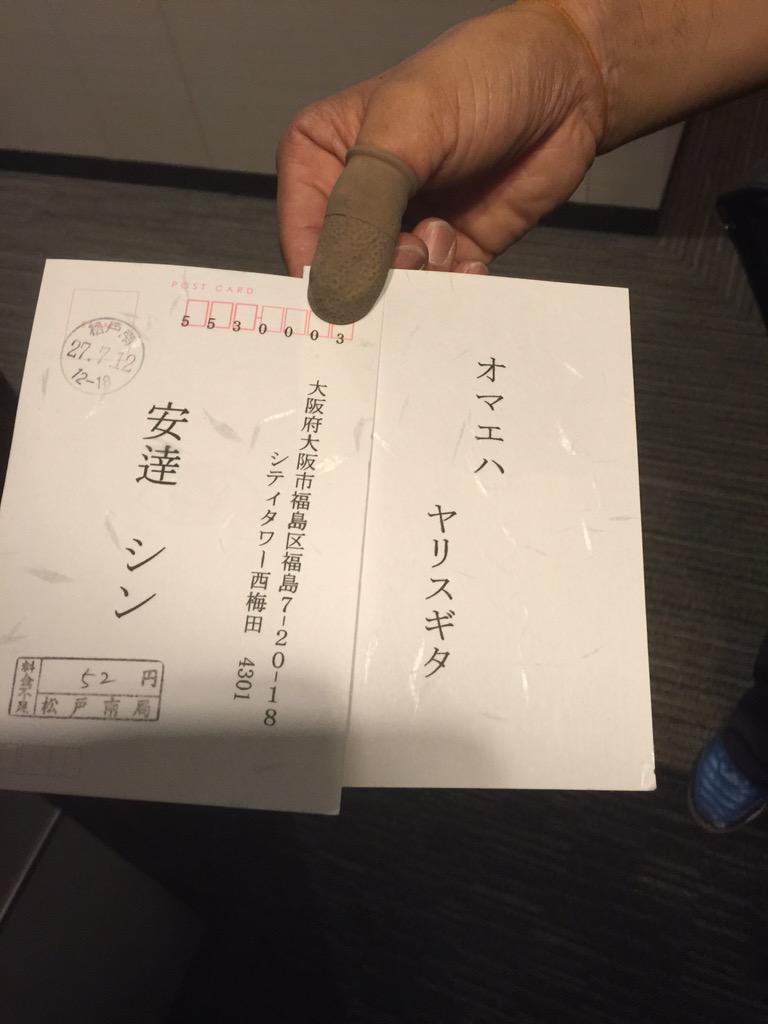 POST CARD
5530003
松戸南
27.7.12
12-18
大阪府大阪市福島区福島7-20-18
シティタワー西梅田 4301
安達 シン
料金不足
52 円
松戸南局
オマエハ
ヤリスギタ